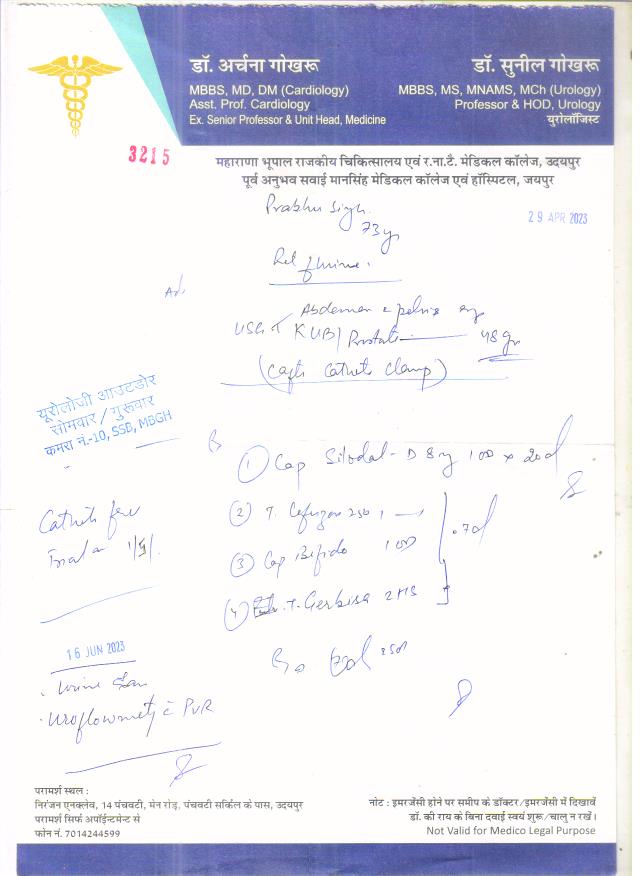 डॉ. अर्चना गोखरू
MBBS, MD, DM (Cardiology)
Asst. Prof. Cardiology
Ex. Senior Professor & Unit Head, Medicine
डॉ. सुनील गोखरू
MBBS, MS, MNAMS, MCh (Urology)
Professor & HOD, Urology
यूरोलॉजिस्ट
3215
महाराणा भूपाल राजकीय चिकित्सालय एवं र.ना.टै. मेडिकल कॉलेज, उदयपुर
पूर्व अनुभव सवाई मानसिंह मेडिकल कॉलेज एवं हॉस्पिटल, जयपुर
Prabhu Singh
73y
29 APR 2023
Adv
Abdomen & pelvis
USG KUB/ Prostate 48 gm
(after Catheter clamp)
यूरोलॉजी आउटडोर
सोमवार / गुरूवार
कमरा नं.-10, SSB, MBGH
① Cap Silodal-D 8mg 1OD x 20d
② T. 250
③ Cap Bifido 1OD
④ T.
7d
Catheter free
Trial
16 JUN 2023
Uroflowmetry c̄ PVR
परामर्श स्थल :
निरंजन एनक्लेव, 14 पंचवटी, मेन रोड़, पंचवटी सर्किल के पास, उदयपुर
परामर्श सिर्फ अपॉईन्टमेन्ट से
फोन नं. 7014244599
नोट : इमरजेंसी होने पर समीप के डॉक्टर/इमरजेंसी में दिखावें
डॉ. की राय के बिना दवाई स्वयं शुरू/चालु न रखें।
Not Valid for Medico Legal Purpose